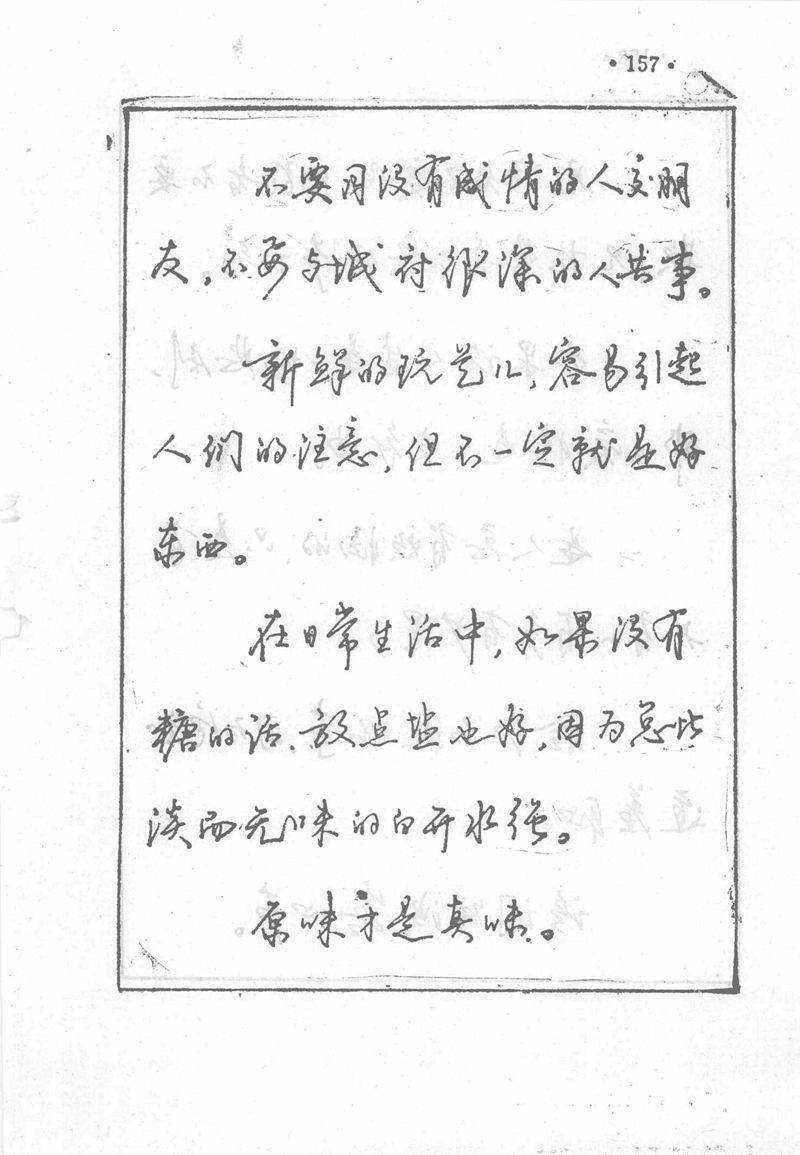 ·157·
不要同没有感情的人交朋
友，不要与城府很深的人共事。
新鲜的玩艺儿，容易引起
人们的注意，但不一定就是好
东西。
在日常生活中，如果没有
糖的话，放点盐也好，因为总比
淡而无味的白开水强。
原味才是真味。